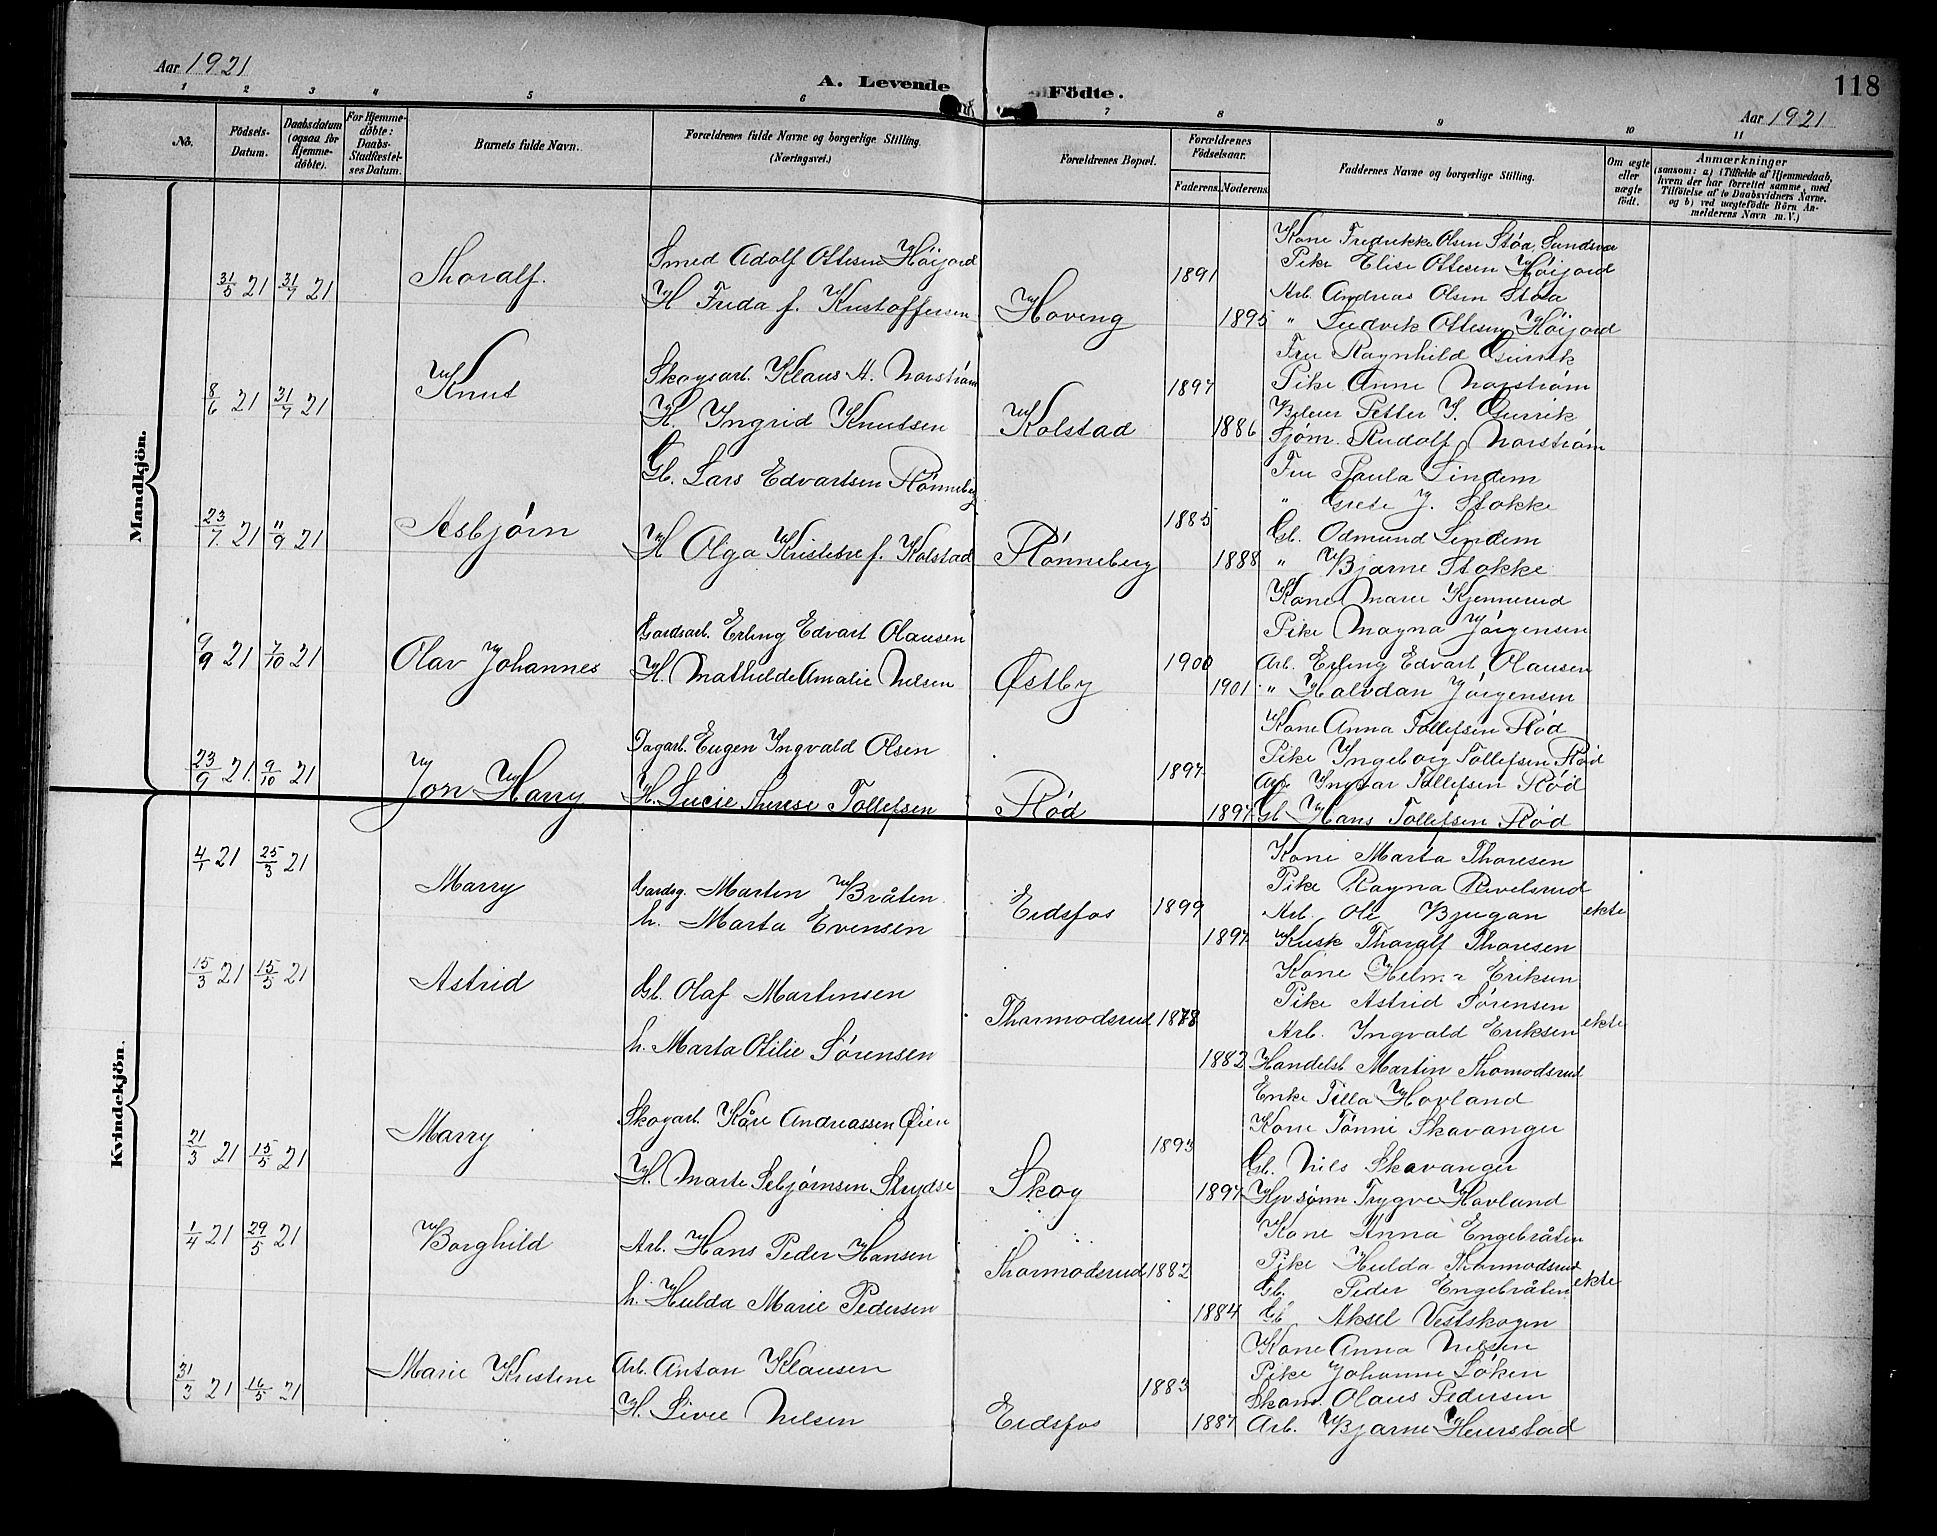 Aar 1921
A. Levende Födte.
118
Aar 1921
1 2 3 4 5 6 7 8 9 10 11
No.
Födsels-Datum.
Daabsdatum (ogsaa for Hjemmedöbte).
For Hjemmedöbte: Daabs-Stadfæstelses Datum.
Barnets fulde Navn.
Forældrenes fulde Navne og borgerlige Stilling. (Næringsvei.)
Forældrenes Bopæl.
Forældrenes Födselsaar.
Faderens. Moderens.
Faddernes Navne og borgerlige Stilling.
Om ægte eller uægte födt.
Anmærkninger
(saasom: a) i Tilfælde af Hjemmedaab, hvem der har forrettet samme, med Tilföielse af to Daabsvidners Navne. og b) ved uægtefödte Börn Anmelderens Navn m. V.)
Mandkjön.
31/5 21 31/7 21 Thoralf.
Smed Adolf Ottesen Høijord
H Frida f. Kristoffersen
Hoveng 1891 1895
Kone Fredrikke Olsen Støa,
Pike Elise Ottesen Høijord
Arb. Andreas Olsen Støa
" Ludvik Ottesen Høijord
8/6 21 31/7 21 Knut
Skogsarb. Klaus A. Norstrøm
H. Ingrid Knutsen
Kolstad 1897 1886
Fru Ragnhild Gurrik
Pike Anne Norstrøm
Petter Y. Gurrik
Sjøm. Rudolf Norstrøm
23/7 21 11/9 21 Asbjørn
Gb. Lars Edvartsen Rønneberg
H Olga Kristine f. Kolstad
Rønneberg 1885 1888
Fru Paula Lindem
" Grete J. Stokke
Gb. Odmund Lindem
" Bjarne Stokke
9/9 21 7/10 21 Olav Johannes
Gardsarb. Erling Edvart Olausen
H. Mathilde Amalie Nilsen
Østby 1900 1901
Kone Marie Kjennerud
Pike Magna Jörgensen
Arb. Erling Edvart Olausen
" Halvdan Jörgensen
23/9 21 9/10 21 Jon Harry
Dagarb. Eugen Ingvald Olsen
H. Lucie Therese Tollefsen
Rød 1897 1897
Kone Anna Tollefsen Rød
Pike Ingeborg Tollefsen Rød
Arb Ingvar Tollefsen Rød
Gb Hans Tollefsen Rød
Kvindekjön.
4/1 21 25/3 21 Marry
Gardsg. Martin Bråten
h. Marta Evensen
Eidsfos 1899 1897
Kone Marta Thoresen
Pike Ragna Revelsrud
Arb. Ole Bjugan
Kusk Thoralf Thoresen
ekte
15/3 21 15/5 21 Astrid
Gb. Olaf Martinsen
h. Marta Otilie Sörensen
Thormodsrud 1878 1882
Kone Helma Eriksen
Pike Astrid Sörensen
Arb. Ingvald Eriksen
Handelsb Martin Thomodsrud
ekte
21/3 21 15/5 21 Marry
Skogarb. Kåre Andreassen Øien
H. Marte Sebjørnsen
Skog 1893 1897
Enke Tilla Hovland
Kone Tönni Skavanger
Gb. Nils Skavanger
Trygve Hovland
1/4 21 29/5 21 Borghild
Arb. Hans Peder Hansen
h. Hulda Marie Pedersen
Thormodsrud 1882 1884
Kone Anna Engebråten
Pike Hulda Thormodsrud
Gb. Peder Engebråten
Gb Aksel Vestskogen
ekte
31/3 21 16/5 21 Marie Kristine
Arb. Anton Klausen
H. Sivee Nilsen
Eidsfos 1883 1887
Kone Anna Nilsen
Pike Johanne Löken
Skom. Olaus Pedersen
Arb. Bjarne Heierstad